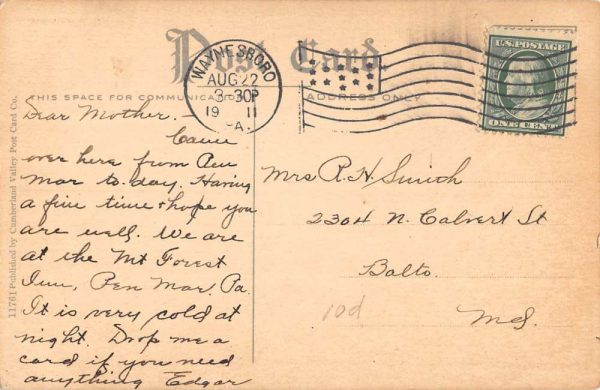 Post Card
WAYNESBORO
AUG 22
3-30P
19 11
PA.
U.S. POSTAGE
ONE CENT
THIS SPACE FOR COMMUNICATION
ADDRESS ONLY
Dear Mother. —
Came
over here from Pen
Mar to-day. Having
a fine time + hope you
are well. We are
at the Mt Forest
Inn, Pen Mar, Pa.
It is very cold at
night. Drop me a
card if you need
anything Edgar
Mrs R. H. Smith
2304 N. Calvert St
Balto.
Md.
10d
11761 Published by Cumberland Valley Post Card Co.